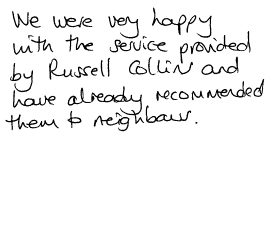 We were very happy
with the service provided
by Russell Collin and
have already recommended
them to neighbours.